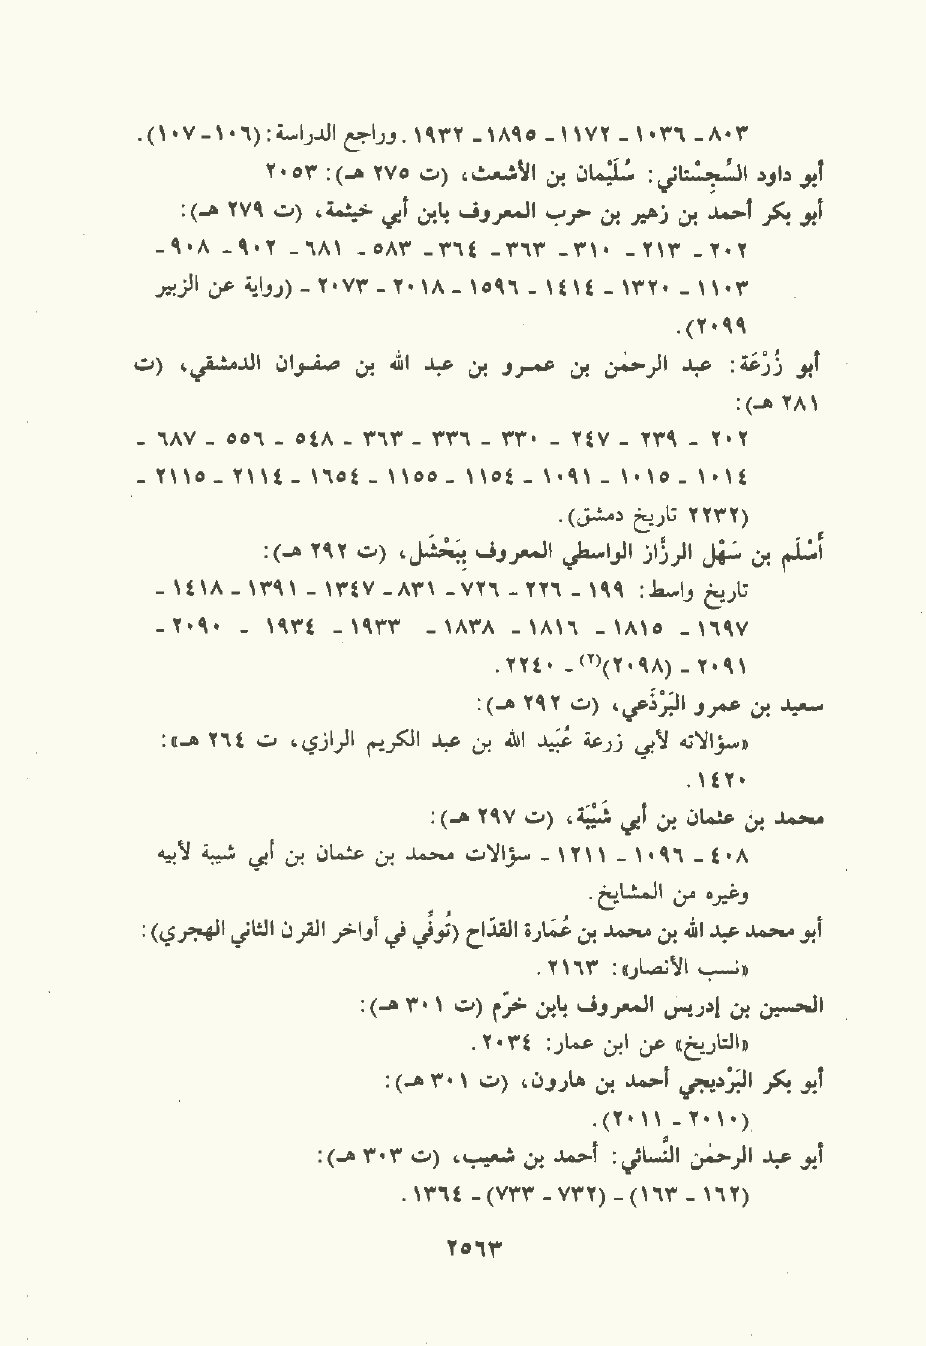 ٨٠٣ - ١٠٣٦ - ١١٧٢ - ١٨٩٥ - ١٩٣٢. وراجع الدراسة: (١٠٦-١٠٧).
أبو داود السِّجِسْتاني: سُلَيْمان بن الأشعث، (ت ٢٧٥ هـ): ٢٠٥٣
أبو بكر أحمد بن زهير بن حرب المعروف بابن أبي خيثمة، (ت ٢٧٩ هـ):
٢٠٢ - ٢١٣ - ٣١٠ - ٣٦٣ - ٣٦٤ - ٥٨٣ - ٦٨١ - ٩٠٢ - ٩٠٨ -
١١٠٣ - ١٣٢٠ - ١٤١٤ - ١٥٩٦ - ٢٠١٨ - ٢٠٧٣ - (رواية عن الزبير
٢٠٩٩).
أبو زُرْعَة: عبد الرحمٰن بن عمرو بن عبد الله بن صفوان الدمشقي، (ت
٢٨١ هـ):
٢٠٢ - ٢٣٩ - ٢٤٧ - ٣٣٠ - ٣٣٦ - ٣٦٣ - ٥٤٨ - ٥٥٦ - ٦٨٧ -
١٠١٤ - ١٠١٥ - ١٠٩١ - ١١٥٤ - ١١٥٥ - ١٦٥٤ - ٢١١٤ - ٢١١٥ -
(٢٢٣٢ تاريخ دمشق).
أَسْلَم بن سَهْل الرزّاز الواسطي المعروف بِبَحْشَل، (ت ٢٩٢ هـ):
تاريخ واسط: ١٩٩ - ٢٢٦ - ٧٢٦ - ٨٣١ - ١٣٤٧ - ١٣٩١ - ١٤١٨ -
١٦٩٧ - ١٨١٥ - ١٨١٦ - ١٨٣٨ - ١٩٣٣ - ١٩٣٤ - ٢٠٩٠ -
٢٠٩١ - (٢٠٩٨)(٢) - ٢٢٤٠.
سعيد بن عمرو البَرْذَعي، (ت ٢٩٢ هـ):
«سؤالاته لأبي زرعة عُبَيد الله بن عبد الكريم الرازي، ت ٢٦٤ هـ»:
١٤٢٠.
محمد بن عثمان بن أبي شَيْبَة، (ت ٢٩٧ هـ):
٤٠٨ - ١٠٩٦ - ١٢١١ - سؤالات محمد بن عثمان بن أبي شيبة لأبيه
وغيره من المشايخ.
أبو محمد عبد الله بن محمد بن عُمَارة القدّاح (تُوفِّي في أواخر القرن الثاني الهجري):
«نسب الأنصار»: ٢١٦٣.
الحسين بن إدريس المعروف بابن خرّم (ت ٣٠١ هـ):
«التاريخ» عن ابن عمار: ٢٠٣٤.
أبو بكر البَرْديجي أحمد بن هارون، (ت ٣٠١ هـ):
(٢٠١٠ - ٢٠١١).
أبو عبد الرحمٰن النَّسائي: أحمد بن شعيب، (ت ٣٠٣ هـ):
(١٦٢ - ١٦٣) - (٧٣٢ - ٧٣٣) - ١٣٦٤.
٢٥٦٣